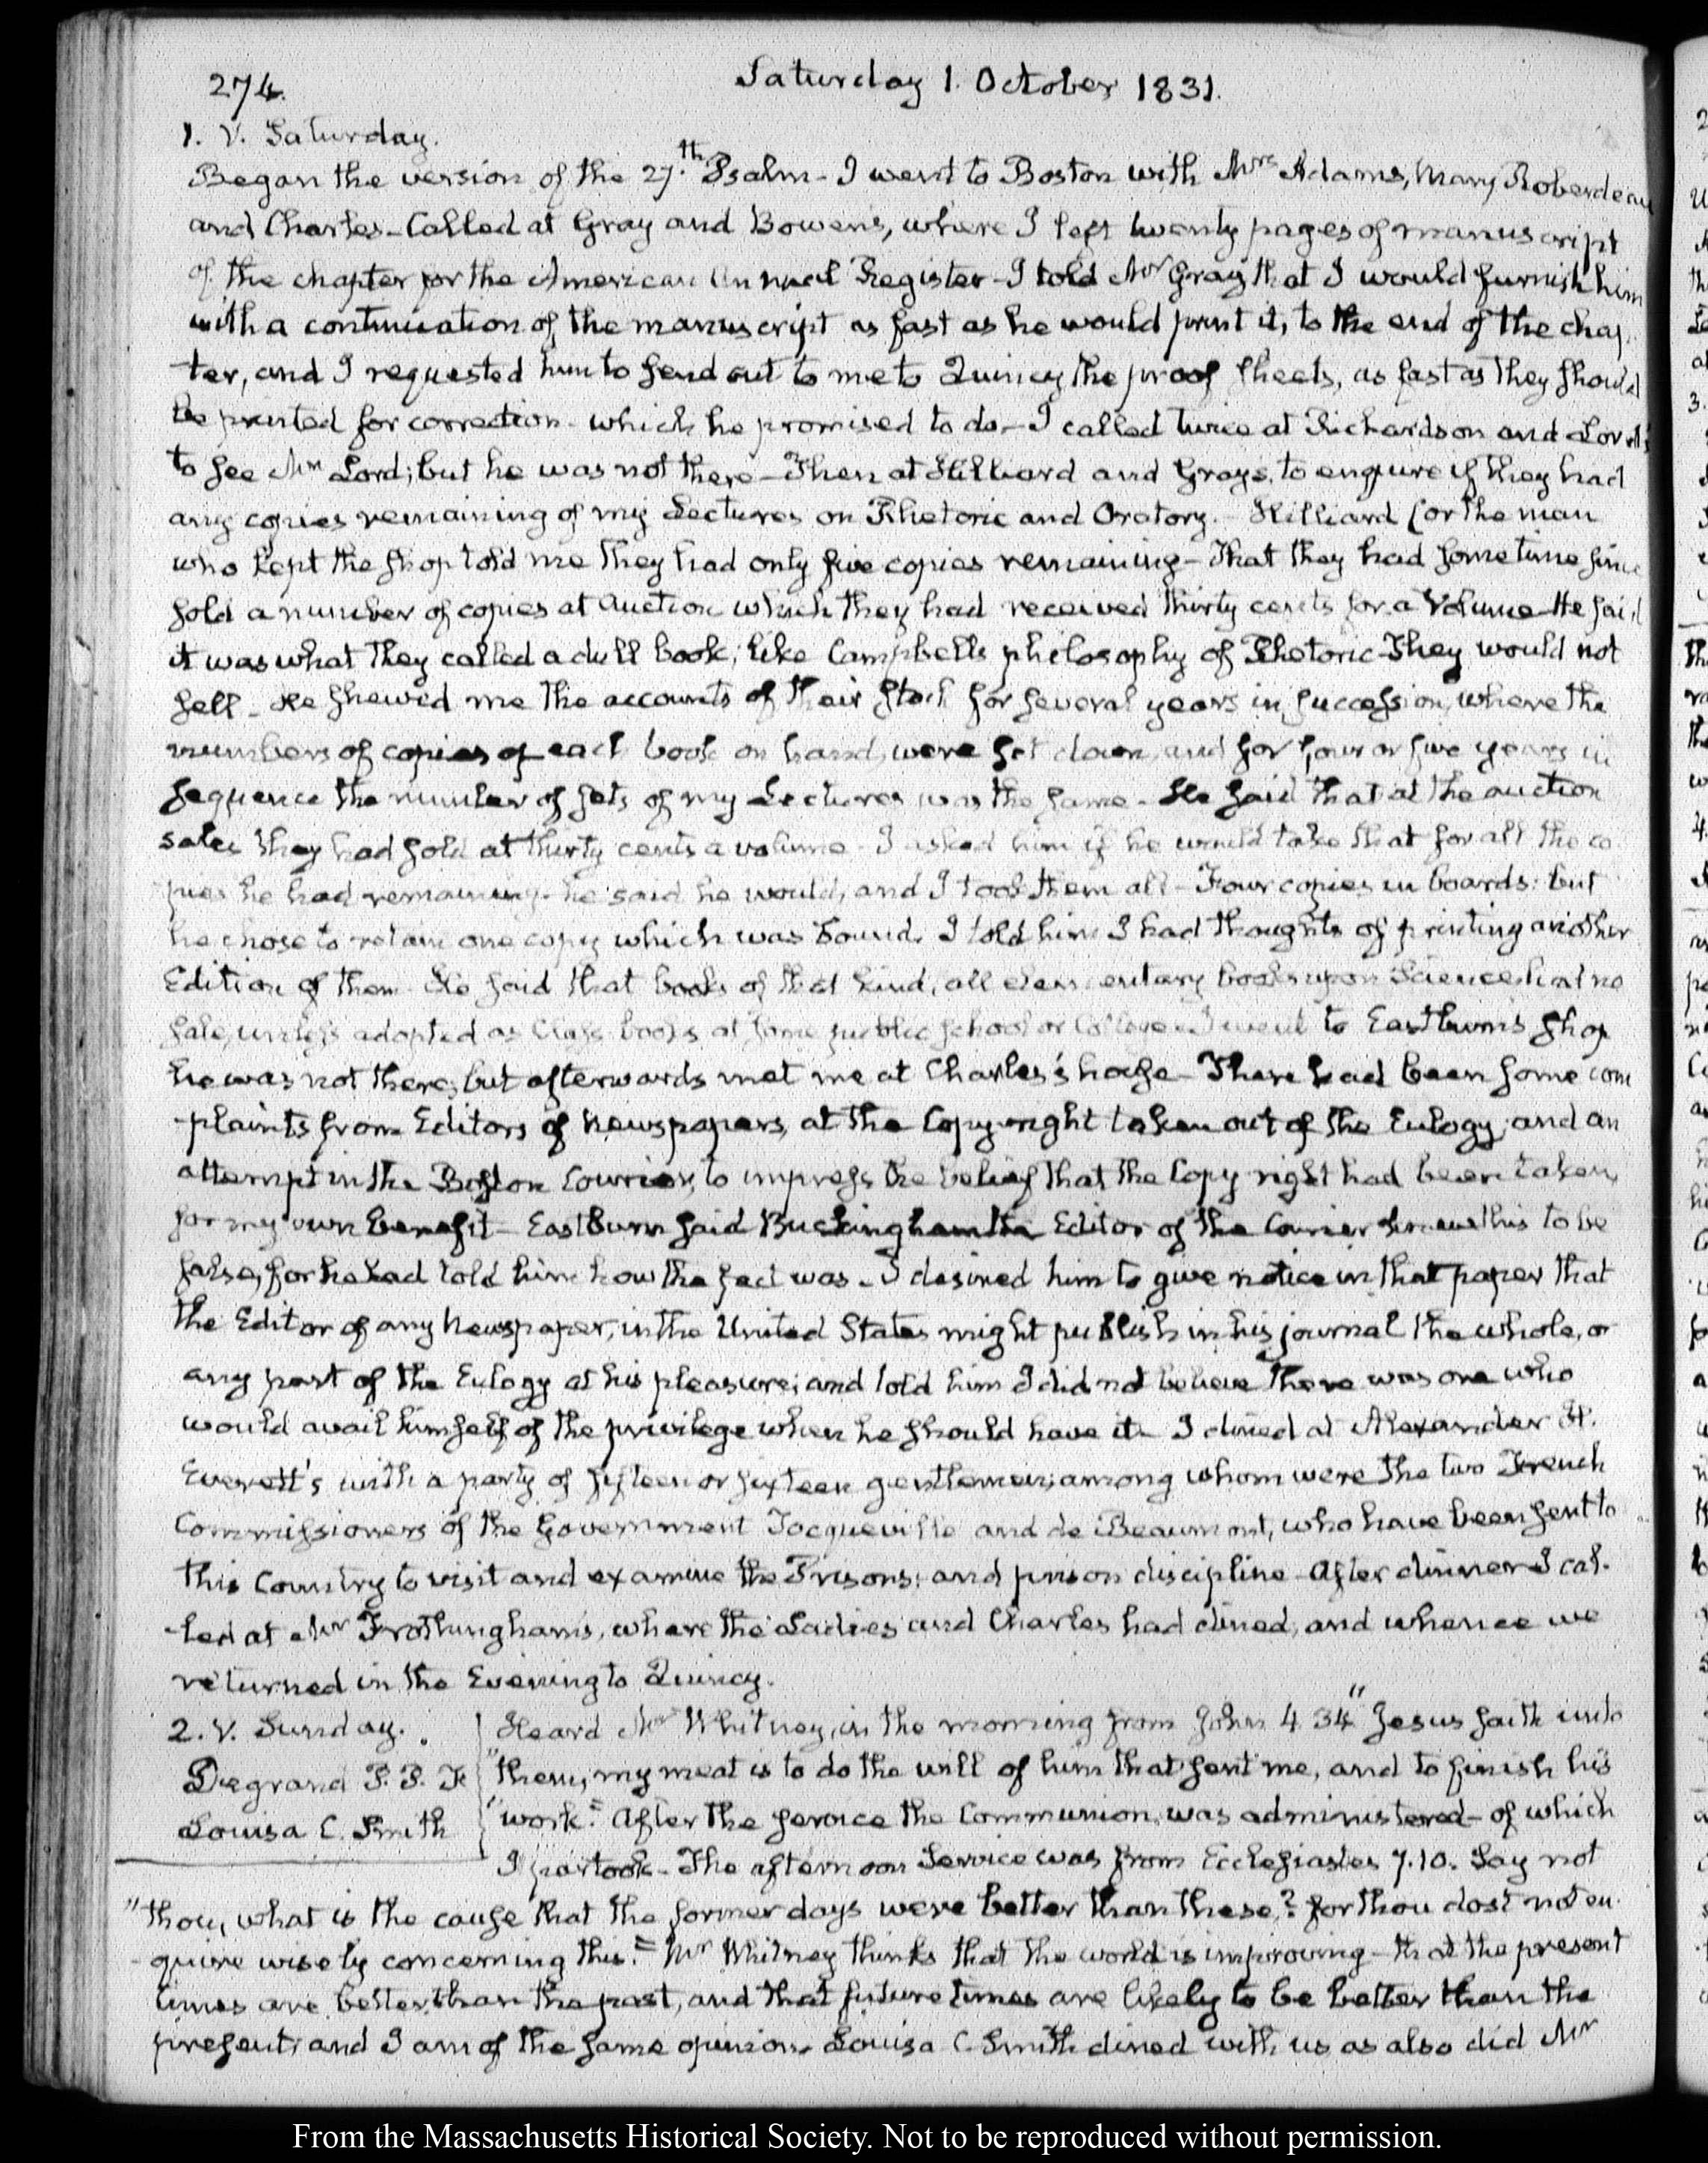 274.
Saturday 1. October 1831.
1. V. Saturday.
Began the version of the 27.th Psalm - I went to Boston with Mrs Adams, Mary Roberdeau
and Charles - Called at Gray and Bowens, where I left twenty pages of manuscript
of the chapter for the American Annual Register - I told Mr Gray that I would furnish him
with a continuation of the manuscript as fast as he would print it, to the end of the chap
ter, and I requested him to send out to me to Quincy the proof sheets, as fast as they should
be printed for correction - which he promised to do - I called twice at Richardson and Lord's
to see Mr Lord; but he was not there - Then at Hilliard and Grays, to enquire if they had
any copies remaining of my Lectures on Rhetoric and Oratory. - Hilliard (or the man
who kept the shop told me they had only five copies remaining - That they had some time since
sold a number of copies at Auction which they had received thirty cents for a Volume - He said
it was what they called a dull book; like Campbells philosophy of Rhetoric - They would not
sell - He shewed me the accounts of their stock for several years in succession, where the
numbers of copies of each book on hand, were set down, and for four or five years in
sequence the number of sets of my Lectures was the same - He said that at the auction
sales they had sold at thirty cents a volume - I asked him if he would take that for all the co
pies he had remaining - he said he would, and I took them all - Four copies in boards: but
he chose to retain one copy which was bound. I told him I had thoughts of printing another
Edition of them - He said that books of that kind, all elementary books upon Science had no
sale, unless adopted as Class books at some public school or College - I went to Eastburn's shop
he was not there, but afterwards met me at Charles's house - There had been some com
-plaints from Editors of Newspapers, at the Copy-right taken out of the Eulogy, and an
attempt in the Boston Courier, to impress the belief that the Copy right had been taken,
for my own benefit - Eastburn said Buckingham the Editor of the Courier knew this to be
false, for he had told him how the fact was - I desired him to give notice in that paper that
the Editor of any Newspaper, in the United States might publish in his journal the whole, or
any part of the Eulogy at his pleasure; and told him I did not believe there was one who
would avail himself of the privilege when he should have it - I dined at Alexander H.
Everett's with a party of fifteen or sixteen gentlemen; among whom were the two French
Commissioners of the Government Tocqueville and de Beaumont, who have been sent to
this Country to visit and examine the Prisons; and prison discipline - After dinner I cal-
-led at Mr Frothingham's, where the Ladies and Charles had dined, and whence we
returned in the Evening to Quincy.
2. V. Sunday.
Degrand P. P. F.
Louisa C. Smith
Heard Mr Whitney, in the morning from John 4. 34. "Jesus saith unto
"them, my meat is to do the will of him that sent me, and to finish his
"work." After the service the Communion, was administered - of which
I partook - The afternoon Service was from Ecclesiastes 7.10. Say not
"thou, what is the cause that the former days were better than these? for thou dost not en
-quire wisely concerning this." Mr Whitney thinks that the world is improving - that the present
times are better than the past, and that future times are likely to be better than the
present; and I am of the same opinion. Louisa C. Smith dined with us as also did Mr
From the Massachusetts Historical Society. Not to be reproduced without permission.